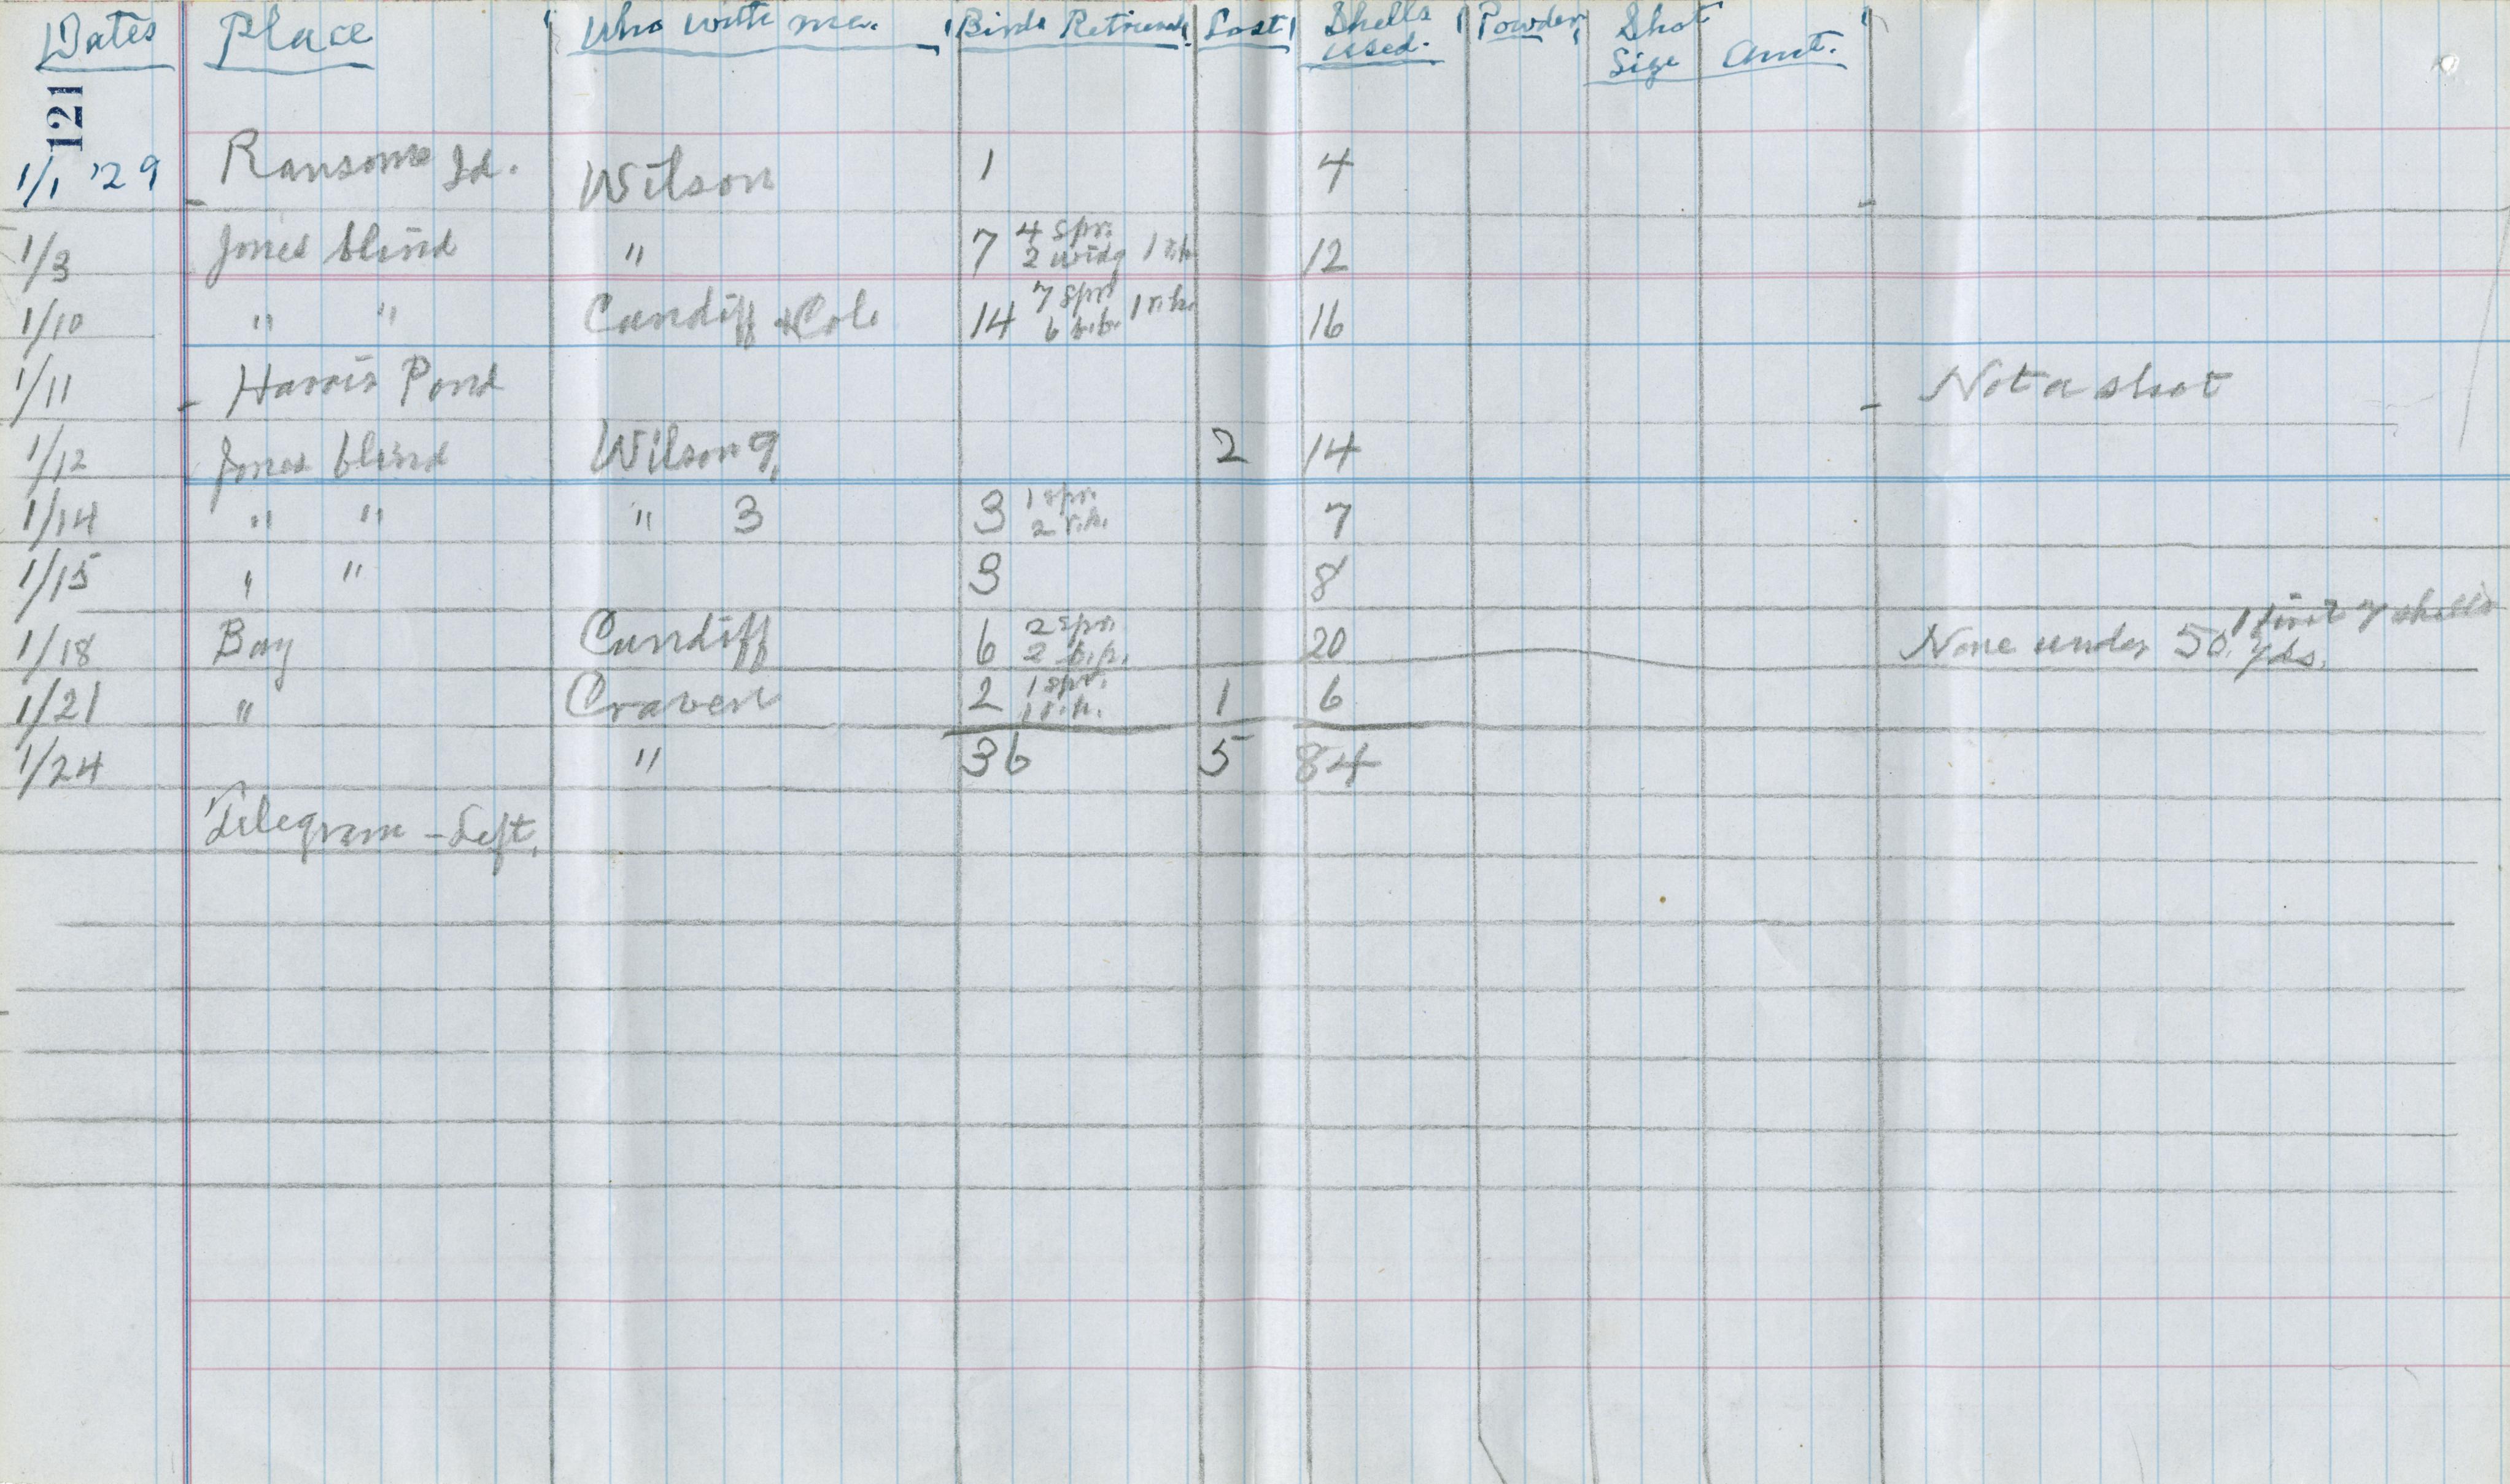 Dates Place Who with me. Birds Retrieved Lost Shells used. Powder Shot Size Amt.
121
1/1 '29 Ransoms Id. Wilson 1 4
1/3 Jones blind " 7 4 spr. 2 widg 1 12
1/10 " " Cundiff + Cole 14 7 spr 6 b.b. 1 r.h. 16
1/11 Harris Pond Not a shot
1/12 Jones blind Wilson 9, 2 14
1/14 " " " 3 3 1 spr. 2 r.h. 7
1/15 " " 3 8
1/18 Bay Cundiff 6 2 spr. 2 20 None under 50 yds. 1 7 shells
1/21 " Craven 2 1 spr. 1 r.h. 1 6
1/24 " 36 5 84
Telegram - Left.